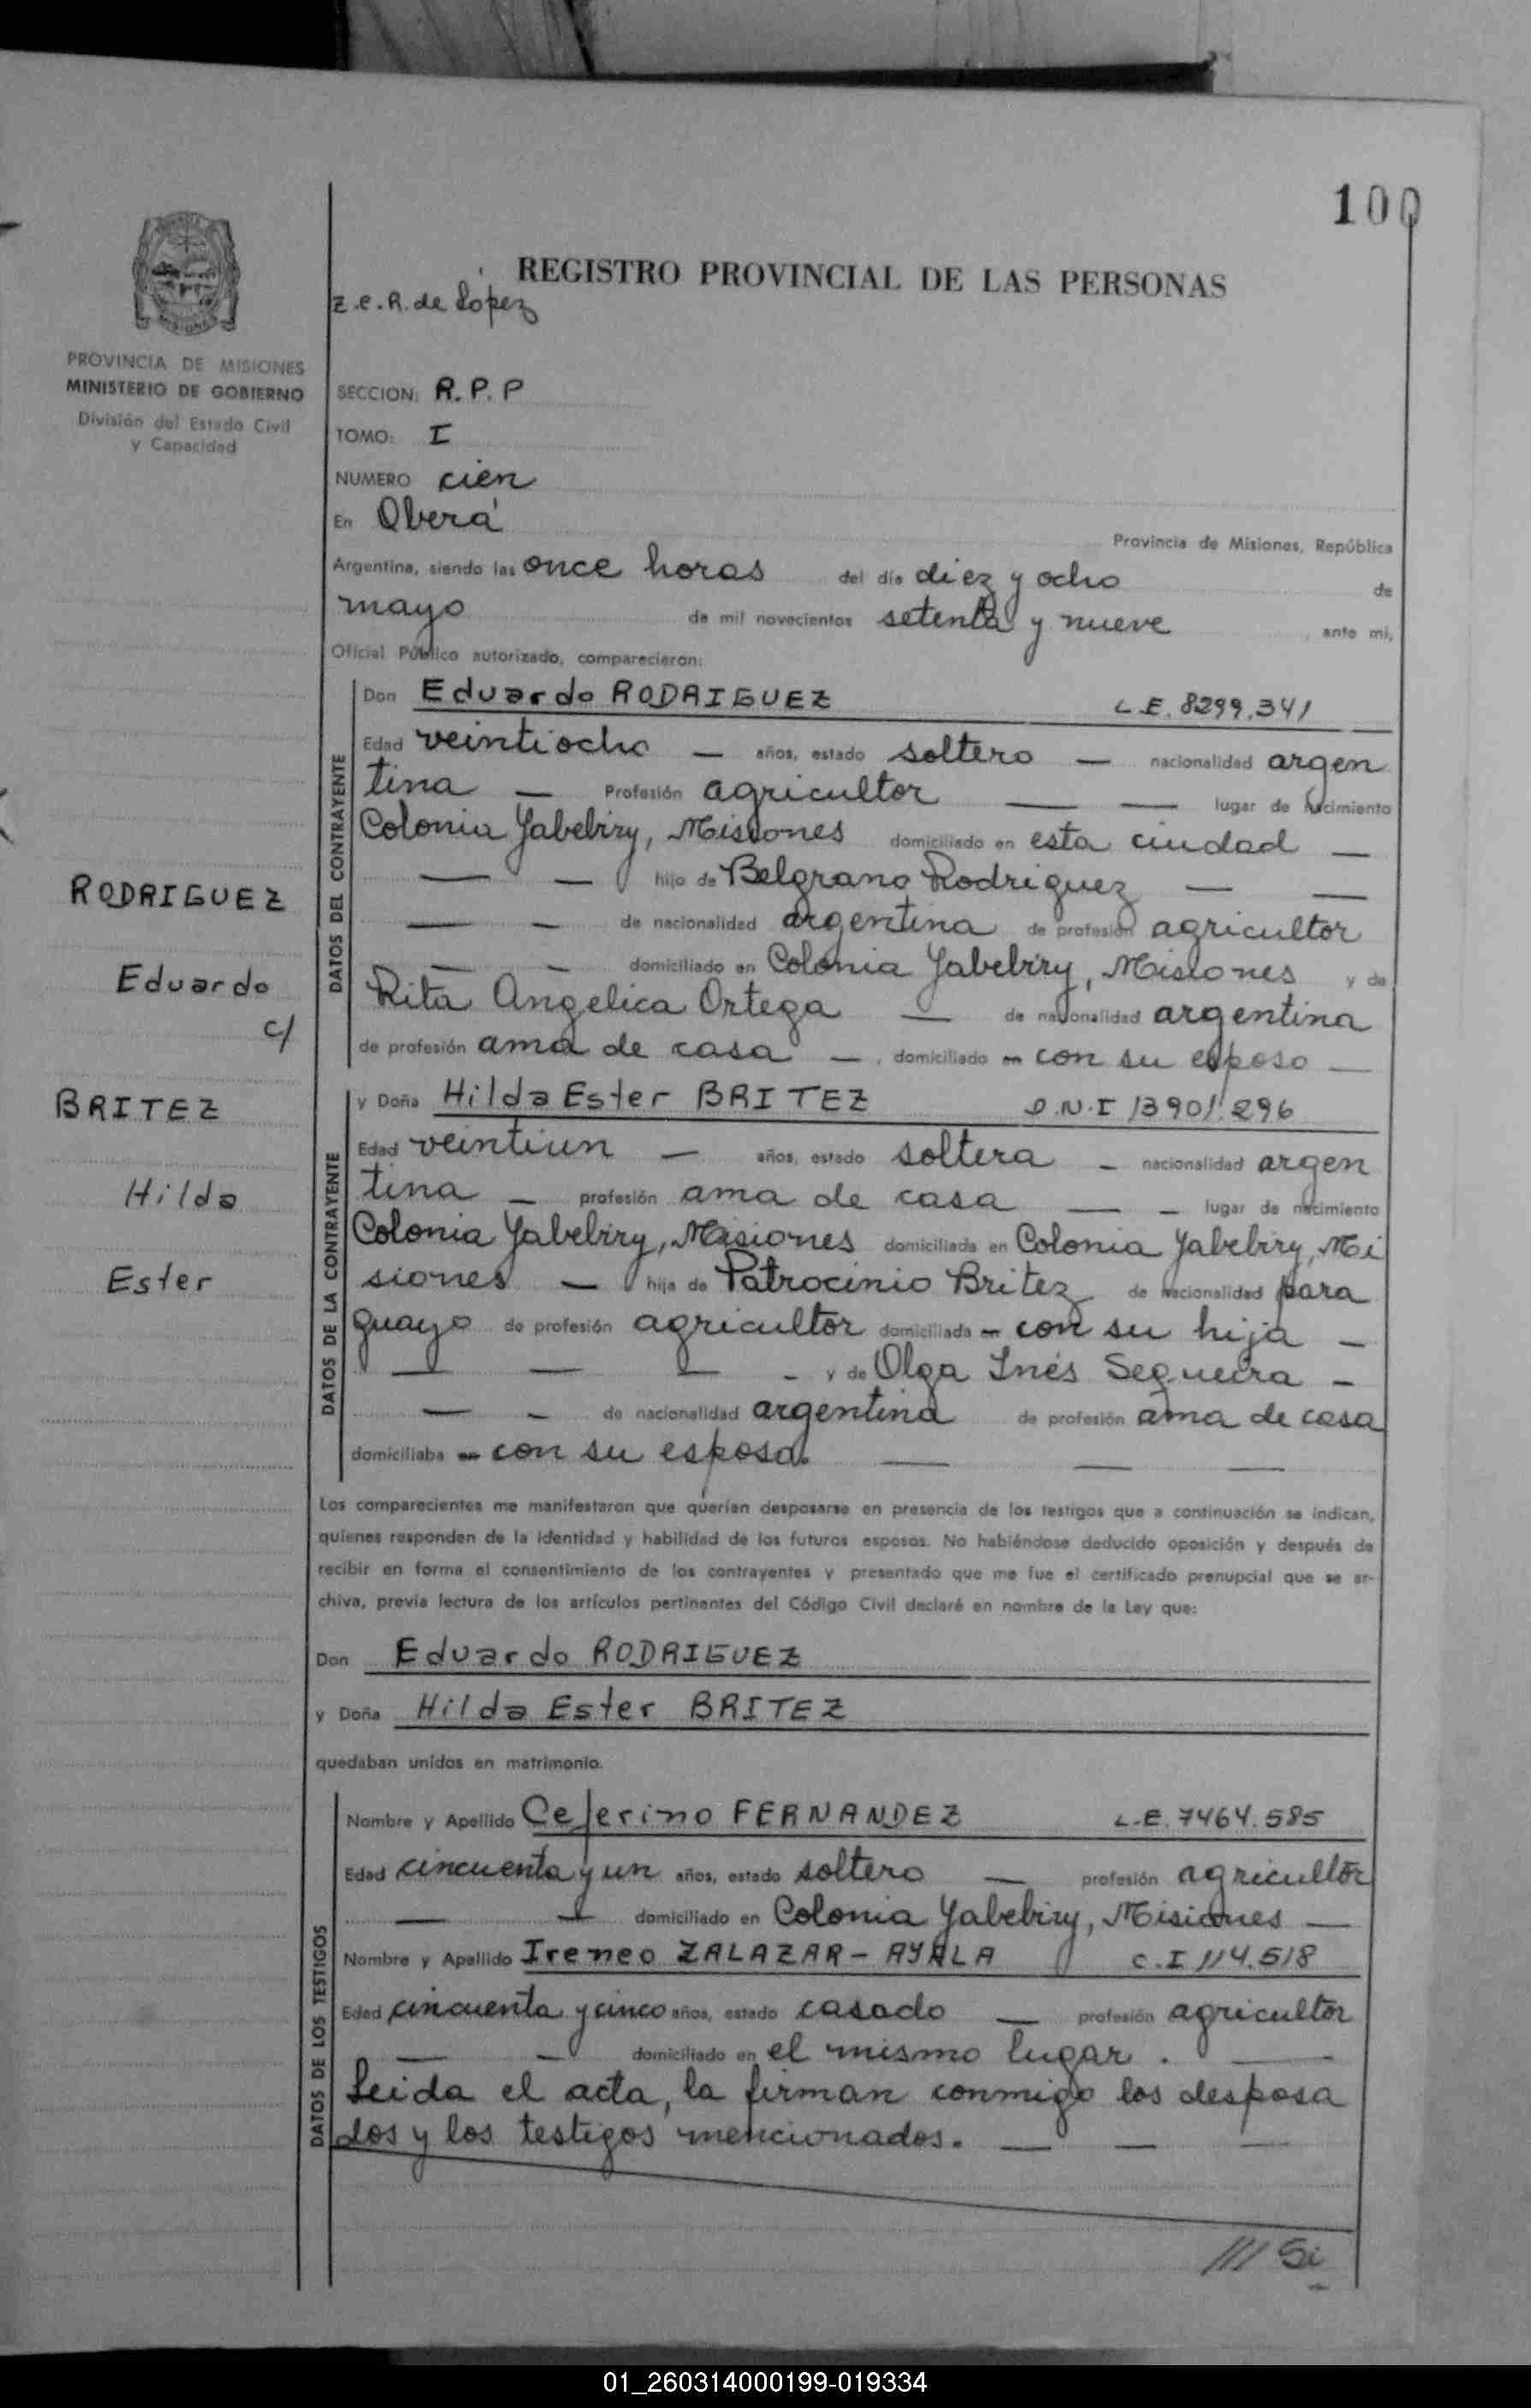 100
REGISTRO PROVINCIAL DE LAS PERSONAS
Z.E.R. de López
PROVINCIA DE MISIONES
MINISTERIO DE GOBIERNO
División del Estado Civil
y Capacidad
SECCION: R.P.P
TOMO: I
NUMERO cien
En Oberá
Provincia de Misiones, República
Argentina, siendo las once horas del día diez y ocho de
mayo de mil novecientos setenta y nueve, ante mi,
Oficial Público autorizado, comparecieron:
DATOS DEL CONTRAYENTE
Don Eduardo RODRIGUEZ L.E. 8299.341
Edad veintiocho — años, estado soltero — nacionalidad argen
tina — Profesión agricultor — — lugar de nacimiento
Colonia Yabebiry, Misiones domiciliado en esta ciudad —
— — hijo de Belgrano Rodriguez — —
— — de nacionalidad argentina de profesión agricultor
— — domiciliado en Colonia Yabebiry, Misiones y de
Rita Angelica Ortega — de nacionalidad argentina
de profesión ama de casa —, domiciliado en con su esposo —
RODRIGUEZ
Eduardo
c/
BRITEZ
Hilda
Ester
DATOS DE LA CONTRAYENTE
y Doña Hilda Ester BRITEZ D.N.I 13901.296
Edad veintiun — años, estado soltera — nacionalidad argen
tina — profesión ama de casa — — lugar de nacimiento
Colonia Yabebiry, Misiones domiciliada en Colonia Yabebiry, Mi
siones — hija de Patrocinio Britez de nacionalidad para
guayo de profesión agricultor domiciliada en con su hija —
— — — — y de Olga Inés Sequeira —
— — de nacionalidad argentina de profesión ama de casa
domiciliaba en con su esposo. — — —
Los comparecientes me manifestaron que querían desposarse en presencia de los testigos que a continuación se indican,
quienes responden de la identidad y habilidad de los futuros esposos. No habiéndose deducido oposición y después de
recibir en forma el consentimiento de los contrayentes y presentado que me fue el certificado prenupcial que se ar-
chiva, previa lectura de los artículos pertinentes del Código Civil declaré en nombre de la Ley que:
Don Eduardo RODRIGUEZ
y Doña Hilda Ester BRITEZ
quedaban unidos en matrimonio.
DATOS DE LOS TESTIGOS
Nombre y Apellido Ceferino FERNANDEZ L.E. 7464.585
Edad cincuenta y un años, estado soltero — profesión agricultor
— — domiciliado en Colonia Yabebiry, Misiones —
Nombre y Apellido Ireneo ZALAZAR - AYALA C.I 114.518
Edad cincuenta y cinco años, estado casado — profesión agricultor
— — domiciliado en el mismo lugar. —
Leida el acta, la firman conmigo los desposa
dos y los testigos mencionados. — — —
/// Si
01_260314000199-019334